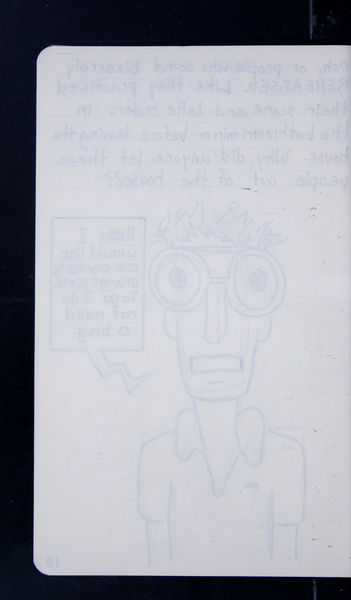 Ooh, or people who sound bizarrely
REHEARSED. Like they practiced
their scone and latte orders in
the bathroom mirror before leaving the
house. Why did anyone let these
people out of the house??
Hello. I
would like
one cranberry
orange scone
To go. I do
not need
a bag.
10